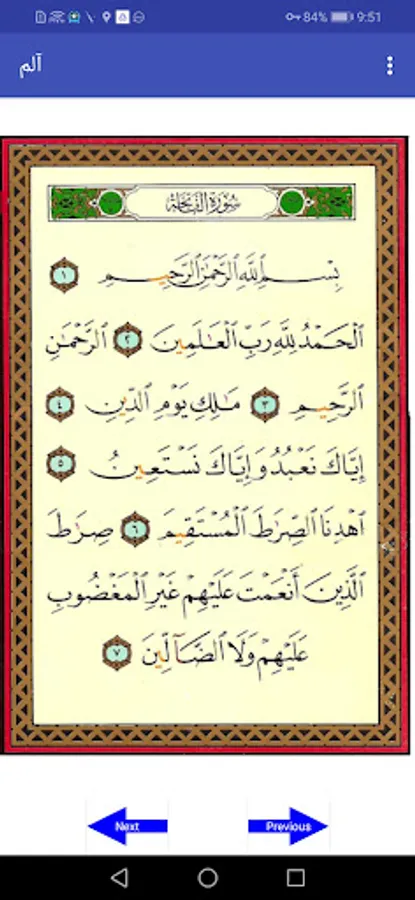 84% 9:51
آلم
سُورَةُ الفَاتِحَةِ
بِسْمِ ٱللَّهِ ٱلرَّحْمَٰنِ ٱلرَّحِيمِ ١
ٱلْحَمْدُ لِلَّهِ رَبِّ ٱلْعَٰلَمِينَ ٢ ٱلرَّحْمَٰنِ
ٱلرَّحِيمِ ٣ مَٰلِكِ يَوْمِ ٱلدِّينِ ٤
إِيَّاكَ نَعْبُدُ وَإِيَّاكَ نَسْتَعِينُ ٥
ٱهْدِنَا ٱلصِّرَٰطَ ٱلْمُسْتَقِيمَ ٦ صِرَٰطَ
ٱلَّذِينَ أَنْعَمْتَ عَلَيْهِمْ غَيْرِ ٱلْمَغْضُوبِ
عَلَيْهِمْ وَلَا ٱلضَّآلِّينَ ٧
Next Previous